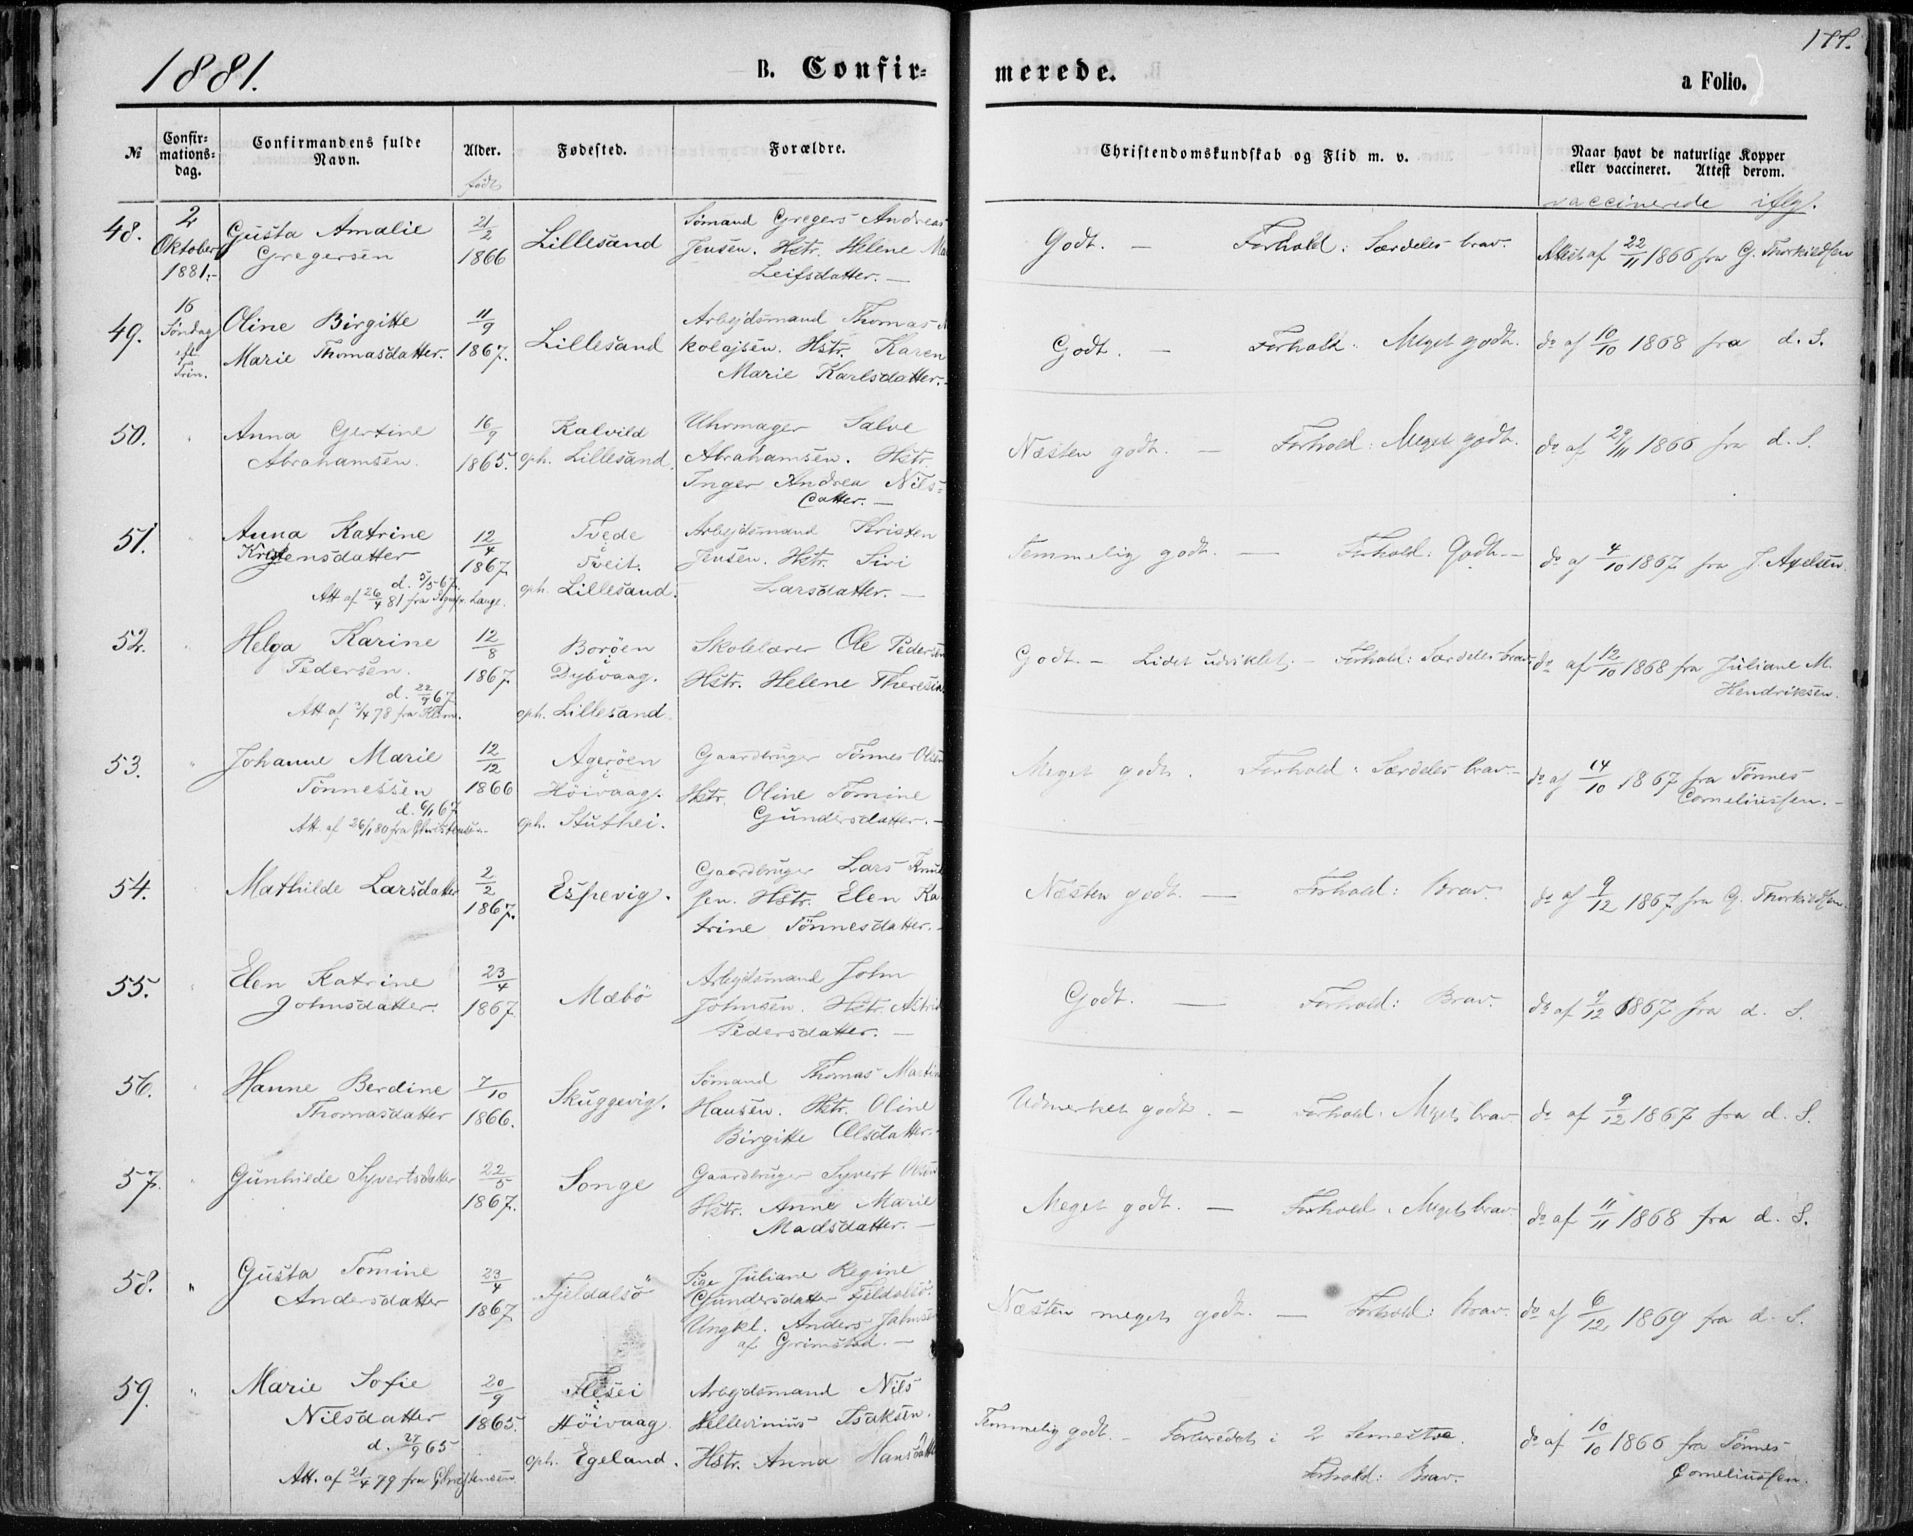 1881.
B. Confir-
merede.
a Folio.
№
Confir-
mations-
dag.
Confirmandens fulde
Navn.
Alder.
født
Fødested.
Forældre.
Christendomskundskab og Flid m. v.
Naar havt de naturlige Kopper
eller vaccineret. Attest derom.
vaccinerede iflg.
48.
2
Oktober
1881.-
Gusta Amalie
Gregersen
21/2
1866
Lillesand
Sømand Gregers Andreas
Jensen. Hstr. Helene
Leifsdatter. —
Godt. — Forhold: Særdeles brav.
Attest af 22/11 1866 fra G. Thorkildsen
49.
16
Søndag
eft.
Trin.
Oline Birgitte
Marie Thomasdatter.
11/9
1867.
Lillesand
Arbejdsmand Thomas
kolajsen. Hstr. Karen
Marie Karlsdatter.
Godt. — Forhold: Meget godt.
do af 10/10 1868 fra d. S.
50.
"
Anna Gertine
Abrahamsen.
16/9
1865.
Kalvild
oph. Lillesand.
Uhrmager Salve
Abrahamsen. Hstr.
Inger Andrea Nils=
datter. —
Næsten godt. — Forhold: Meget godt.
do af 29/11 1866 fra d. S.
51.
"
Anna Katrine
Kristensdatter
d. 5/5 67.
Att af 26/4 81 fra Lange.
12/4
1867.
Tvede
i
Tveit.
oph. Lillesand.
Arbejdsmand Kristen
Jensen. Hstr. Siri
Larsdatter. —
Temmelig godt. — Forhold: Godt. —
do af 4/10 1867 fra J. Axelsen.
52.
"
Helga Karine
Pedersen.
d. 22/9 67
12/8
1867.
Borøen
i
Dybvaag.
oph. Lillesand.
Skolelærer Ole Pedersen
Hstr. Helene Theresia
Godt. — Lidet udviklet. — Forhold: Særdeles brav.
do af 12/10 1868 fra Juliane M.
Hendriksen.
53.
"
Johanne Marie
Tønnessen
d. 6/1 67
Att. af 26/1 80 fra Christensen
12/12
1866
Agerøen
i
Høivaag.
oph. Stuthei.
Gaardbruger Tønnes Olsen
Hstr. Oline Tomine
Gundersdatter. —
Meget godt. Forhold: Særdeles brav. —
do af 14/10 1867 fra Tønnes
Corneliussen. —
54.
"
Mathilde Larsdatter
2/2
1867.
Espevig.
Gaardbruger Lars Knud
sen. Hstr. Elen Ka
trine Tønnesdatter.
Næsten godt. — Forhold: Brav.
do af 9/12 1867 fra G. Thorkildsen.
55.
"
Elen Katrine
Johnsdatter.
23/4
1867.
Mæbö
Arbejdsmand John
Johnsen. Hstr. Astrid
Pedersdatter. —
Godt. — Forhold: Brav.
do af 9/12 1867 fra d. S.
56.
"
Hanne Berdine
Thomasdatter
7/10
1866.
Skuggevig.
Sømand Thomas Martin
Hansen. Hstr. Oline
Birgitte Olsdatter.
Udmerket godt. — Forhold: Meget brav
do af 9/12 1867 fra d. S.
57.
Gunhilde Syvertsdatter
22/5
1867.
Songe
Gaardbruger Syvert Olsen
Hstr. Anne Marie
Madsdatter. —
Meget godt. — Forhold: Meget brav
do af 11/11 1868 fra d. S.
58.
"
Gusta Tomine
Andersdatter
23/4
1867
Fjeldalsö
Pige Juliane Regine
Gundersdatter Fjeldalsö.
Ungkl. Anders Johnsen
af Grimstad. —
Næsten meget godt. — Forhold: Brav.
do af 6/12 1869 fra d. S.
59.
"
Marie Sofie
Nilsdatter
d. 27/9 65
Att. af 21/4 79 fra Christensen
20/9
1865.
i
Høivaag
oph. Egeland.
Arbejdsmand Nils
Isaksen.
Hstr. Anna Hansdatter
Temmelig godt. — Forberedt i 2 Semestre.
Forhold: Brav.
do af 10/10 1866 fra Tønnes
Corneliussen.